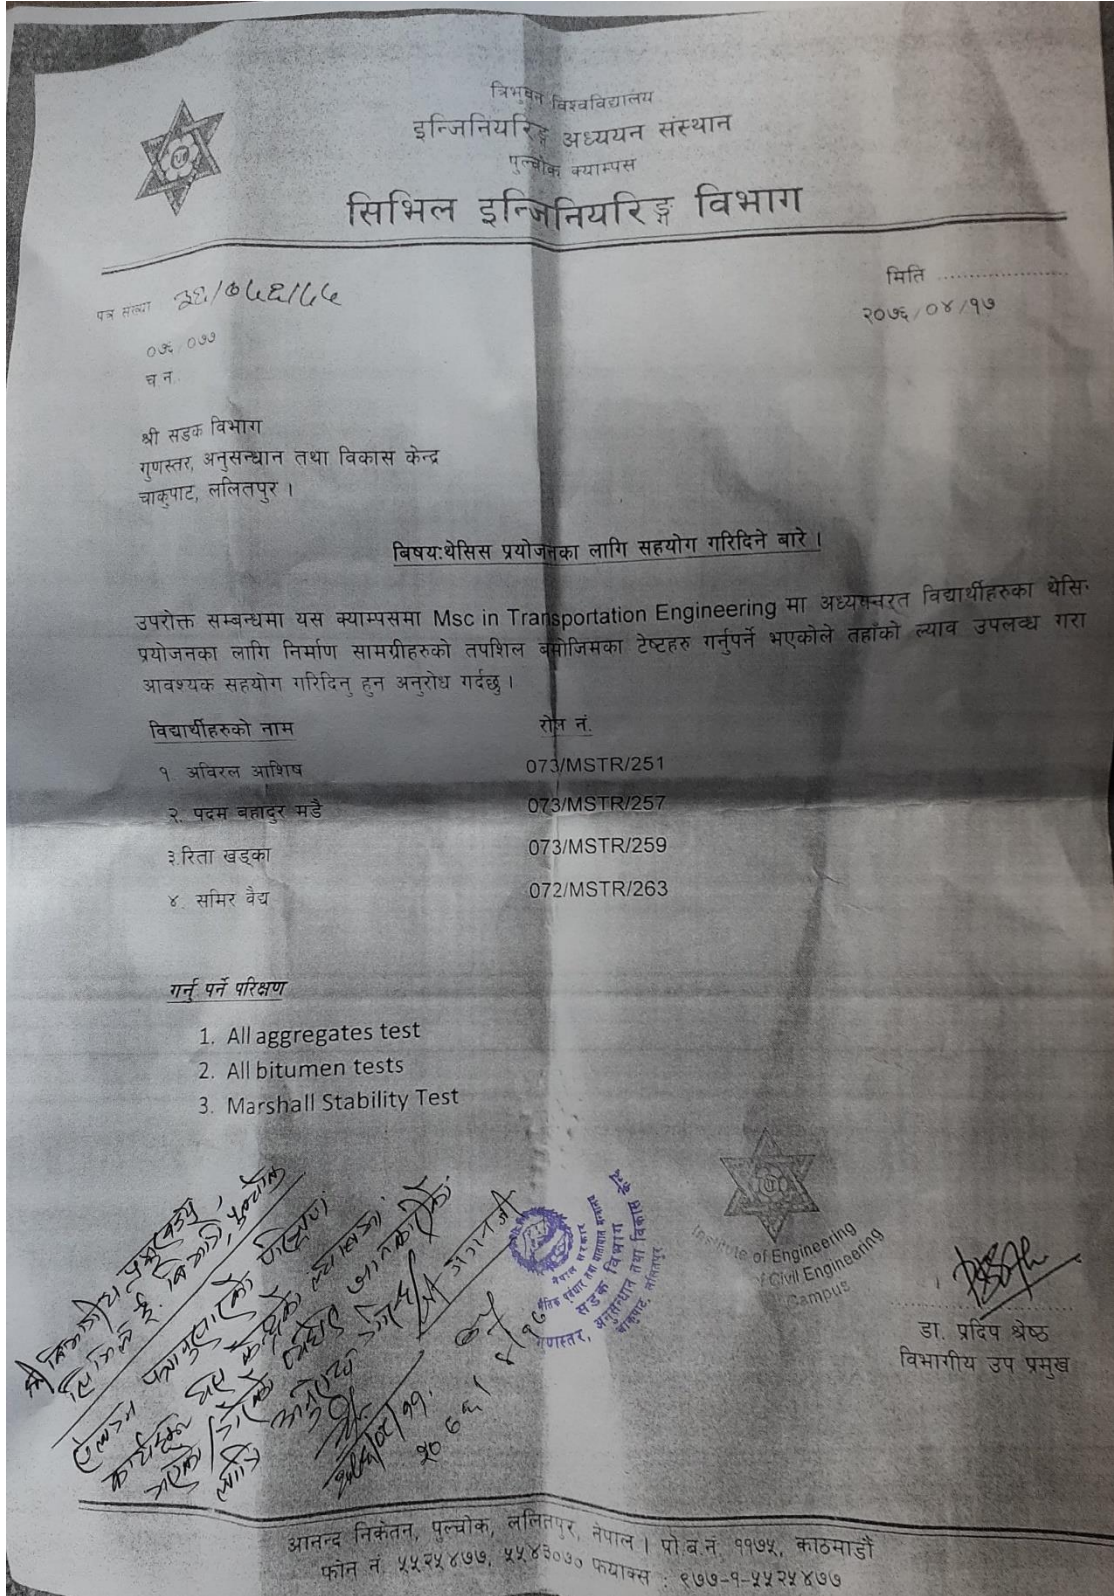 त्रिभुवन विश्वविद्यालय
इन्जिनियरिङ्ग अध्ययन संस्थान
पुल्चोक क्याम्पस
सिभिल इन्जिनियरिङ्ग विभाग
मिति ......................
पत्र संख्या
२०७६/०४/१७
०७६/०७७
च.न.
श्री सडक विभाग
गुणस्तर, अनुसन्धान तथा विकास केन्द्र
चाकुपाट, ललितपुर ।
बिषय:थेसिस प्रयोजनका लागि सहयोग गरिदिने बारे ।
उपरोक्त सम्बन्धमा यस क्याम्पसमा Msc in Transportation Engineering मा अध्ययनरत विद्यार्थीहरुका थेसि
प्रयोजनका लागि निर्माण सामग्रीहरुको तपशिल बमोजिमका टेष्टहरु गर्नुपर्ने भएकोले तहाँको ल्याव उपलब्ध गरा
आवश्यक सहयोग गरिदिनु हुन अनुरोध गर्दछु ।
विद्यार्थीहरुको नाम रोल नं.
१. अविरल आशिष 073/MSTR/251
२. पदम बहादुर मडै 073/MSTR/257
३.रिता खड्का 073/MSTR/259
४. समिर वैद्य 072/MSTR/263
गर्नु पर्ने परिक्षण
1. All aggregates test
2. All bitumen tests
3. Marshall Stability Test
नेपाल सरकार
भौतिक पूर्वाधार तथा यातायात मन्त्रालय
सडक विभाग
गुणस्तर, अनुसन्धान तथा विकास केन्द्र
चाकुपाट, ललितपुर
Institute of Engineering
Civil Engineering
Campus
डा. प्रदिप श्रेष्ठ
विभागीय उप प्रमुख
आनन्द निकेतन, पुल्चोक, ललितपुर, नेपाल । पो.ब.नं. ११७५, काठमाडौं
फोन नं. ५५२५४७७, ५५४३०७० फयाक्स : ९७७-१-५५२५४७७